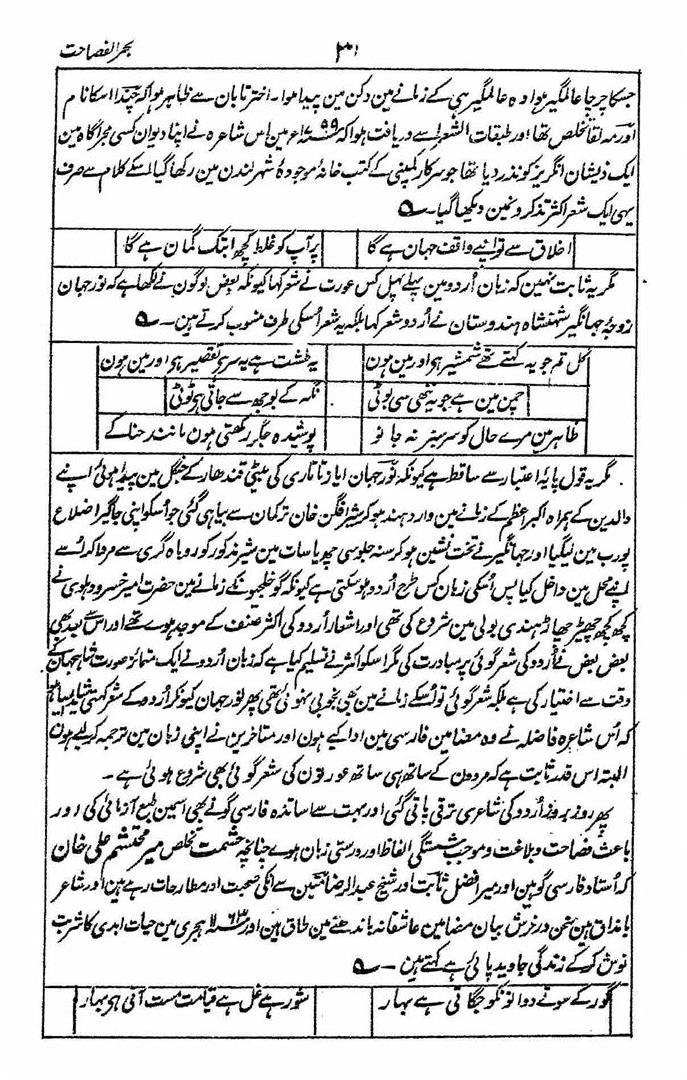 بحر الفصاحت
۳۱
جسکا چرچا عالمگیر ہوا وہ عالمگیر ہی کے زمانے مین دکن مین پیدا ہوا۔ اختر تابان سے ظاہر ہوا کہ چندا اسکا نام
اور مہ لقا تخلص تھا اور طبقات الشعرا سے دریافت ہوا کہ ۱۷۹۹ء مین اس شاعرہ نے اپنا دیوان کسی مجراگاہ مین
ایک ذیشان انگریز کو نذر دیا تھا جو سرکار کمپنی کے کتب خانۂ موجودۂ شہر لندن مین رکھا گیا اسکے کلام سے صرف
یہی ایک شعر اکثر تذکرونمین دیکھا گیا۔
اخلاق سے تو اپنے واقف جہان ہے گا
پر آپ کو غلط کچھ ابتک گمان ہے گا
مگر یہ ثابت نہین کہ زبان اُردو مین پہلے پہل کس عورت نے شعر کہا کیونکہ بعض لوگون نے لکھا ہے کہ نور جہان
زوجۂ جہانگیر شہنشاہ ہندوستان نے اُردو شعر کہا بلکہ یہ شعر اُسکی طرف منسوب کرتے ہین۔
کل تم جو یہ کہتے تھے شمشیر ہی اور مین ہون
یہ طشت ہے یہ سر ہی تقصیر ہی اور مین ہون
چمن مین ہے جو یہ ننھی سی بوٹی
نگہ کے بوجھ سے جاتی ہی ٹوٹی
ظاہر مین مرے حال کو سرسبز نہ جانو
پوشیدہ جگر رکھتی ہون مانند حنا کے
مگر یہ قول پایۂ اعتبار سے ساقط ہے کیونکہ نور جہان ایاز تاتاری کی بیٹی قندھار کے جنگل مین پیدا ہوئی اپنے
والدین کے ہمراہ اکبر اعظم کے زمانے مین وارد ہند ہو کر شیر افگن خان ترکمان سے بیاہی گئی جو اُسکو اپنی جاگیر اضلاع
پورب مین لیگیا اور جہانگیر نے تخت نشین ہو کر سنہ جلوسی چھ یا سات مین شیر مذکور کو روباہ گری سے مروا کر اُسے
اپنے محل مین داخل کیا پس اُسکی زبان کس طرح اُردو ہو سکتی ہے کیونکہ گو خلجیونکے زمانے مین حضرت امیر خسرو دہلوی نے
کچھ کچھ چھیڑ چھاڑ ہندی بولی مین شروع کی تھی اور اشعار اُردو کی اکثر صنف کے موجد ہوے تھے اور اس سے بعد بھی
بعض بعض نے اُردو کی شعر گوئی پر مبادرت کی مگر اسکو اکثر نے تسلیم کیا ہے کہ زبان اُردو نے ایک متمائز صورت شاہجہان کے
وقت سے اختیار کی ہے بلکہ شعر گوئی تو اُسکے زمانے مین بھی بخوبی نہوئی تھی پھر نور جہان کیونکر اُردو کے شعر کہتی شاید ایسا ہو
کہ اُس شاعرہ فاضلہ نے وہ مضامین فارسی مین ادا کیے ہون اور متاخرین نے اپنی زبان مین ترجمہ کر لیے ہون
البتہ اس قدر ثابت ہے کہ مردون کے ساتھ ہی ساتھ عورتون کی شعر گوئی بھی شروع ہوئی ہے۔
پھر روز بروز اُردو کی شاعری ترقی پاتی گئی اور بہت سے اساتذہ فارسی گو نے بھی اسمین طبع آزمائی کی اور
باعث فصاحت و بلاغت و موجب شستگی الفاظ اور درستی زبان ہوے چنانچہ حشمت تخلص میر محتشم علی خان
کہ اُستاد فارسی گو ہین اور میر افضل ثابت اور شیخ عبد الرضا متین سے انکی صحبت اور مطارحات رہے ہین اور شاعر
بامذاق ہین سخن و رخوش بیان مضامین عاشقانہ باندھنے مین طاق ہین اور ۱۱۶۳ ہجری مین حیات ابدی کا شربت
نوش کر کے زندگی جاوید پائی ہے کہتے ہین۔
گور کے سوتے دوانونکو جگاتی ہے بہار
شور ہے غل ہے قیامت مست آئی ہی بہار